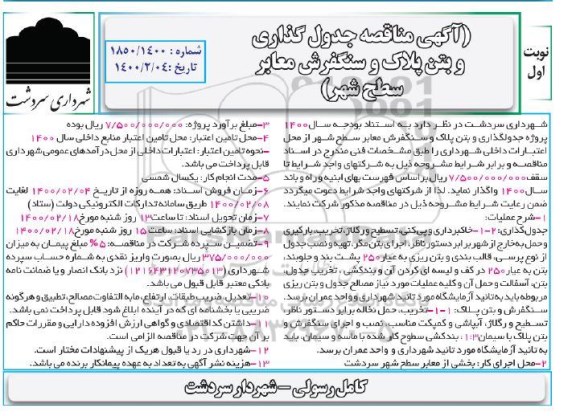 نوبت
اول
(آگهی مناقصه جدول گذاری
و بتن پلاک و سنگفرش معابر
سطح شهر)
شماره : ۱۸۵۰/۱۴۰۰
تاریخ : ۱۴۰۰/۲/۰۴
شهرداری سردشت
شهرداری سردشت در نظر دارد به استناد بودجه سال ۱۴۰۰
پروژه جدولگذاری و بتن پلاک و سنگفرش معابر سطح شهر از محل
اعتبارات داخلی شهرداری را طبق مشخصات فنی مندرج در اسناد
مناقصه و برابر شرایط مشروحه ذیل به شرکتهای واجد شرایط تا
سقف ۷/۵۰۰/۰۰۰/۰۰۰ ریال براساس فهرست بهای ابنیه و راه و باند
سال ۱۴۰۰ واگذار نماید. لذا از شرکتهای واجد شرایط دعوت میگردد
ضمن رعایت شرایط مشروحه ذیل در مناقصه مذکور شرکت نمایند.
۱-شرح عملیات:
جدول‌گذاری: ۲-۱-خاکبرداری و پی‌کنی، تسطیح و رگلاژ، تخریب، بارگیری
و حمل به خارج از شهر برابر دستور ناظر، اجرای بتن مگر، تهیه و نصب جدول
از نوع پرسی، قالب بندی و بتن ریزی به عیار ۲۵۰ پشت بند و جلوبند،
بتن به عیار ۲۵۰ در کف و لیسه ای کردن آن و بندکشی، تخریب جدول،
بتن، آسفالت و حمل آن و کلیه عملیات مورد نیاز مصالح جدول و بتن ریزی
مربوطه باید به تائید آزمایشگاه مورد تائید شهرداری و واحد عمران برسد.
سنگفرش و بتن پلاک: ۱-۱-تخریب، حمل نخاله برابر دستور ناظر،
تسطیح و رگلاژ، آبپاشی و کمپکت مناسب، نصب و اجرای سنگفرش و
بتن پلاک با سیمان ۱:۳، بندکشی سطوح کار شده با ماسه و سیمان. باید
به تائید آزمایشگاه مورد تائید شهرداری و واحد عمران برسد.
۲-محل اجرای کار: بخشی از معابر سطح شهر سردشت
۳-مبلغ برآورد پروژه: ۷/۵۰۰/۰۰۰/۰۰۰ ریال بوده
۴-محل تامین اعتبار: محل تامین اعتبار منابع داخلی سال ۱۴۰۰
-نحوه تامین اعتبار: اعتبارات داخلی از محل درآمدهای عمومی شهرداری
قابل پرداخت می باشد.
۵-مدت انجام کار: یکسال شمسی
۶-زمان فروش اسناد: همه روزه از تاریخ ۱۴۰۰/۰۲/۰۴ لغایت
۱۴۰۰/۰۲/۰۸ طریق سامانه تدارکات الکترونیکی دولت (ستاد)
۷-زمان تحویل اسناد: تا ساعت ۱۳ روز شنبه مورخ ۱۴۰۰/۰۲/۱۸
۸-زمان بازگشایی اسناد: ساعت ۱۵ روز شنبه مورخ ۱۴۰۰/۰۲/۱۸
۹-تضمین سپرده شرکت در مناقصه: ۵% مبلغ پیمان به میزان
۳۷۵/۰۰۰/۰۰۰ ریال بصورت واریز نقدی به شماره حساب سپرده
شهرداری نزد بانک انصار و یا ضمانت نامه
بانکی معتبر قابل قبول می باشد.
۱۰-تعدیل، ضریب طبقات، ارتفاع، مابه التفاوت مصالح، تطبیق و هرگونه
ضریبی با بخشنامه ای که در آینده ابلاغ شود قابل پرداخت نمی باشد.
۱۱-داشتن کد اقتصادی و گواهی ارزش افزوده دارایی و مقررات حاکم
بر آن جهت شرکت در مناقصه الزامی است.
۱۲-شهرداری در رد یا قبول هریک از پیشنهادات مختار است.
۱۳-هزینه نشر آگهی به تعداد به عهده پیمانکار برنده می باشد.
کامل رسولی - شهردار سردشت